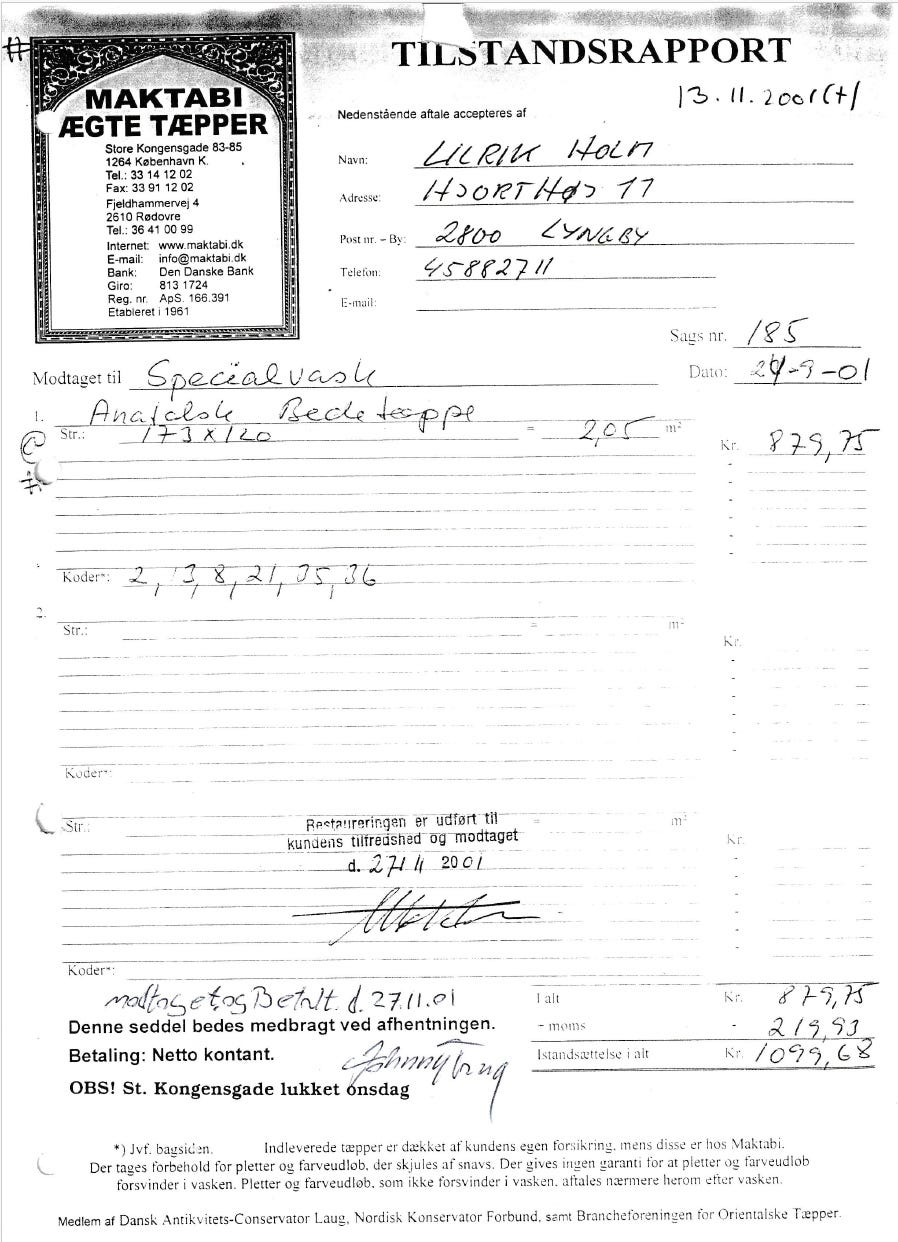 TILSTANDSRAPPORT
13.11.2001(+)
MAKTABI
ÆGTE TÆPPER
Store Kongensgade 83-85
1264 København K.
Tel.: 33 14 12 02
Fax: 33 91 12 02
Fjeldhammervej 4
2610 Rødovre
Tel.: 36 41 00 99
Internet: www.maktabi.dk
E-mail: info@maktabi.dk
Bank: Den Danske Bank
Giro: 813 1724
Reg. nr. ApS. 166.391
Etableret i 1961
Nedenstående aftale accepteres af
Navn: ULRIK HOLM
Adresse: HJORTHØJ 11
Post nr. – By: 2800 LYNGBY
Telefon: 45882711
E-mail:
Sags nr. 185
Modtaget til Specialvask Dato: 24-9-01
1. Anatolsk Bedetæppe
Str.: 173 x 120 = 2,05 m² Kr. 879,75
Koder*: 2, 13, 8, 21, 35, 36
2.
Str.: = m² Kr.
Koder*:
Str.: = m² Kr.
Restaureringen er udført til
kundens tilfredshed og modtaget
d. 27/11 2001
Koder*:
modtaget og Betalt d. 27.11.01
I alt Kr. 879,75
Denne seddel bedes medbragt ved afhentningen.
- moms - 219,93
Betaling: Netto kontant.
Istandsættelse i alt Kr. 1099,68
OBS! St. Kongensgade lukket onsdag
*) Jvf. bagsiden. Indleverede tæpper er dækket af kundens egen forsikring, mens disse er hos Maktabi.
Der tages forbehold for pletter og farveudløb, der skjules af snavs. Der gives ingen garanti for at pletter og farveudløb
forsvinder i vasken. Pletter og farveudløb, som ikke forsvinder i vasken, aftales nærmere herom efter vasken.
Medlem af Dansk Antikvitets-Conservator Laug, Nordisk Konservator Forbund, samt Brancheforeningen for Orientalske Tæpper.